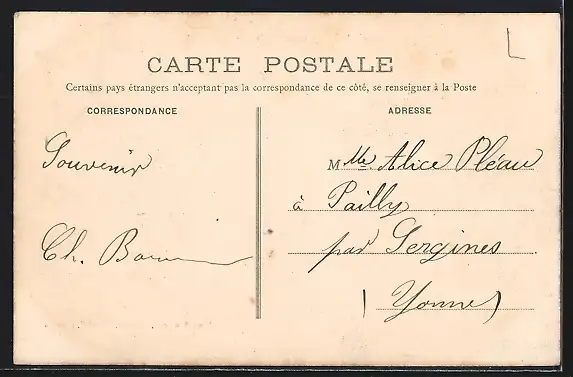 CARTE POSTALE
Certains pays étrangers n'acceptant pas la correspondance de ce côté, se renseigner à la Poste
CORRESPONDANCE
Souvenir
Ch.
ADRESSE
M Mlle Alice Pléau
à Pailly
par Sergines
(Yonne)